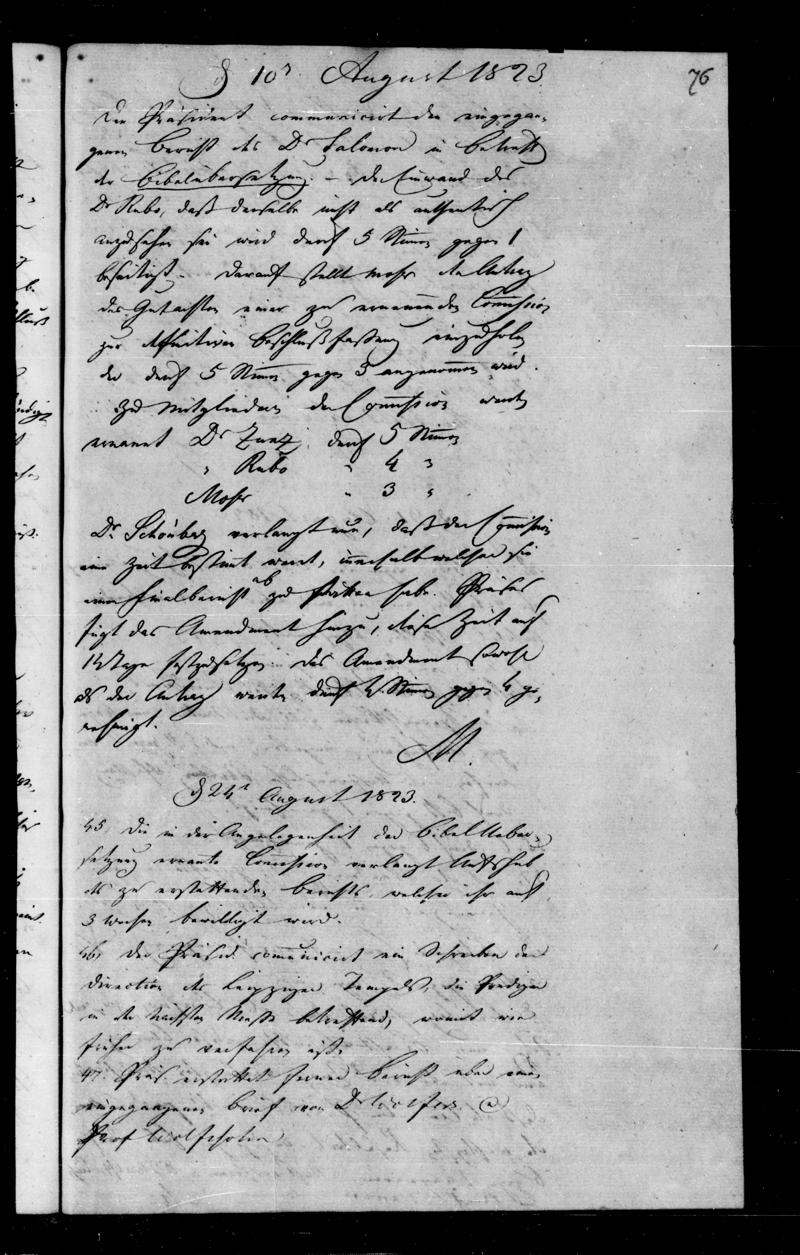 § 10ᵗ August 1823.
76
Der Präsident communicirt den eingegan-
genen Bericht des Dr Salomon in Betreff
der Bibelübersetzung. – Der Einwand des
Dr Rubo, daß derselbe nicht als authentisch
anzusehen sei wird durch 5 Stimen gegen 1
beseitigt. Darauf stellt Moser den Antrag
das Gutachten einer zu ernennenden Comission
zur definitiven Beschlußfassung einzuholen
der durch 5 Stimen gegen 3 angenommen wird.
Zu Mitgliedern der Comission werden
ernannt Dr Zunz durch 5 Stimen
" Rubo " 4 "
Moser " 3 "
Dr. Schönberg verlangt nun, daß der Comission
eine Zeit bestimt werde, innerhalb welcher sie
einen Finalbericht abzustatten habe. Präses
fügt das Amendment hinzu, diese Zeit auf
14 Tage festzusetzen. Das Amendment sowohl
als der Antrag werden durch Stimen gegen 4 ge-
nehmigt.
M.
§ 24ᵗ August 1823.
45, Die in der Angelegenheit der Bibel Ueber-
setzung ernante Comission verlangt Aufschub
des zu erstattenden Berichts, welcher ihr auf
3 Wochen bewilligt wird.
46, Der Präsid. comunicirt ein Schreiben der
Direction des Leipziger Tempels, die Prediger
in der nächsten Messe betreffend, womit wie
früher zu verfahren ist.
47. Präs. erstattet ferner Bericht über einen
eingegangenen Brief von Dr Wolfers @
Prof Wolfssohn